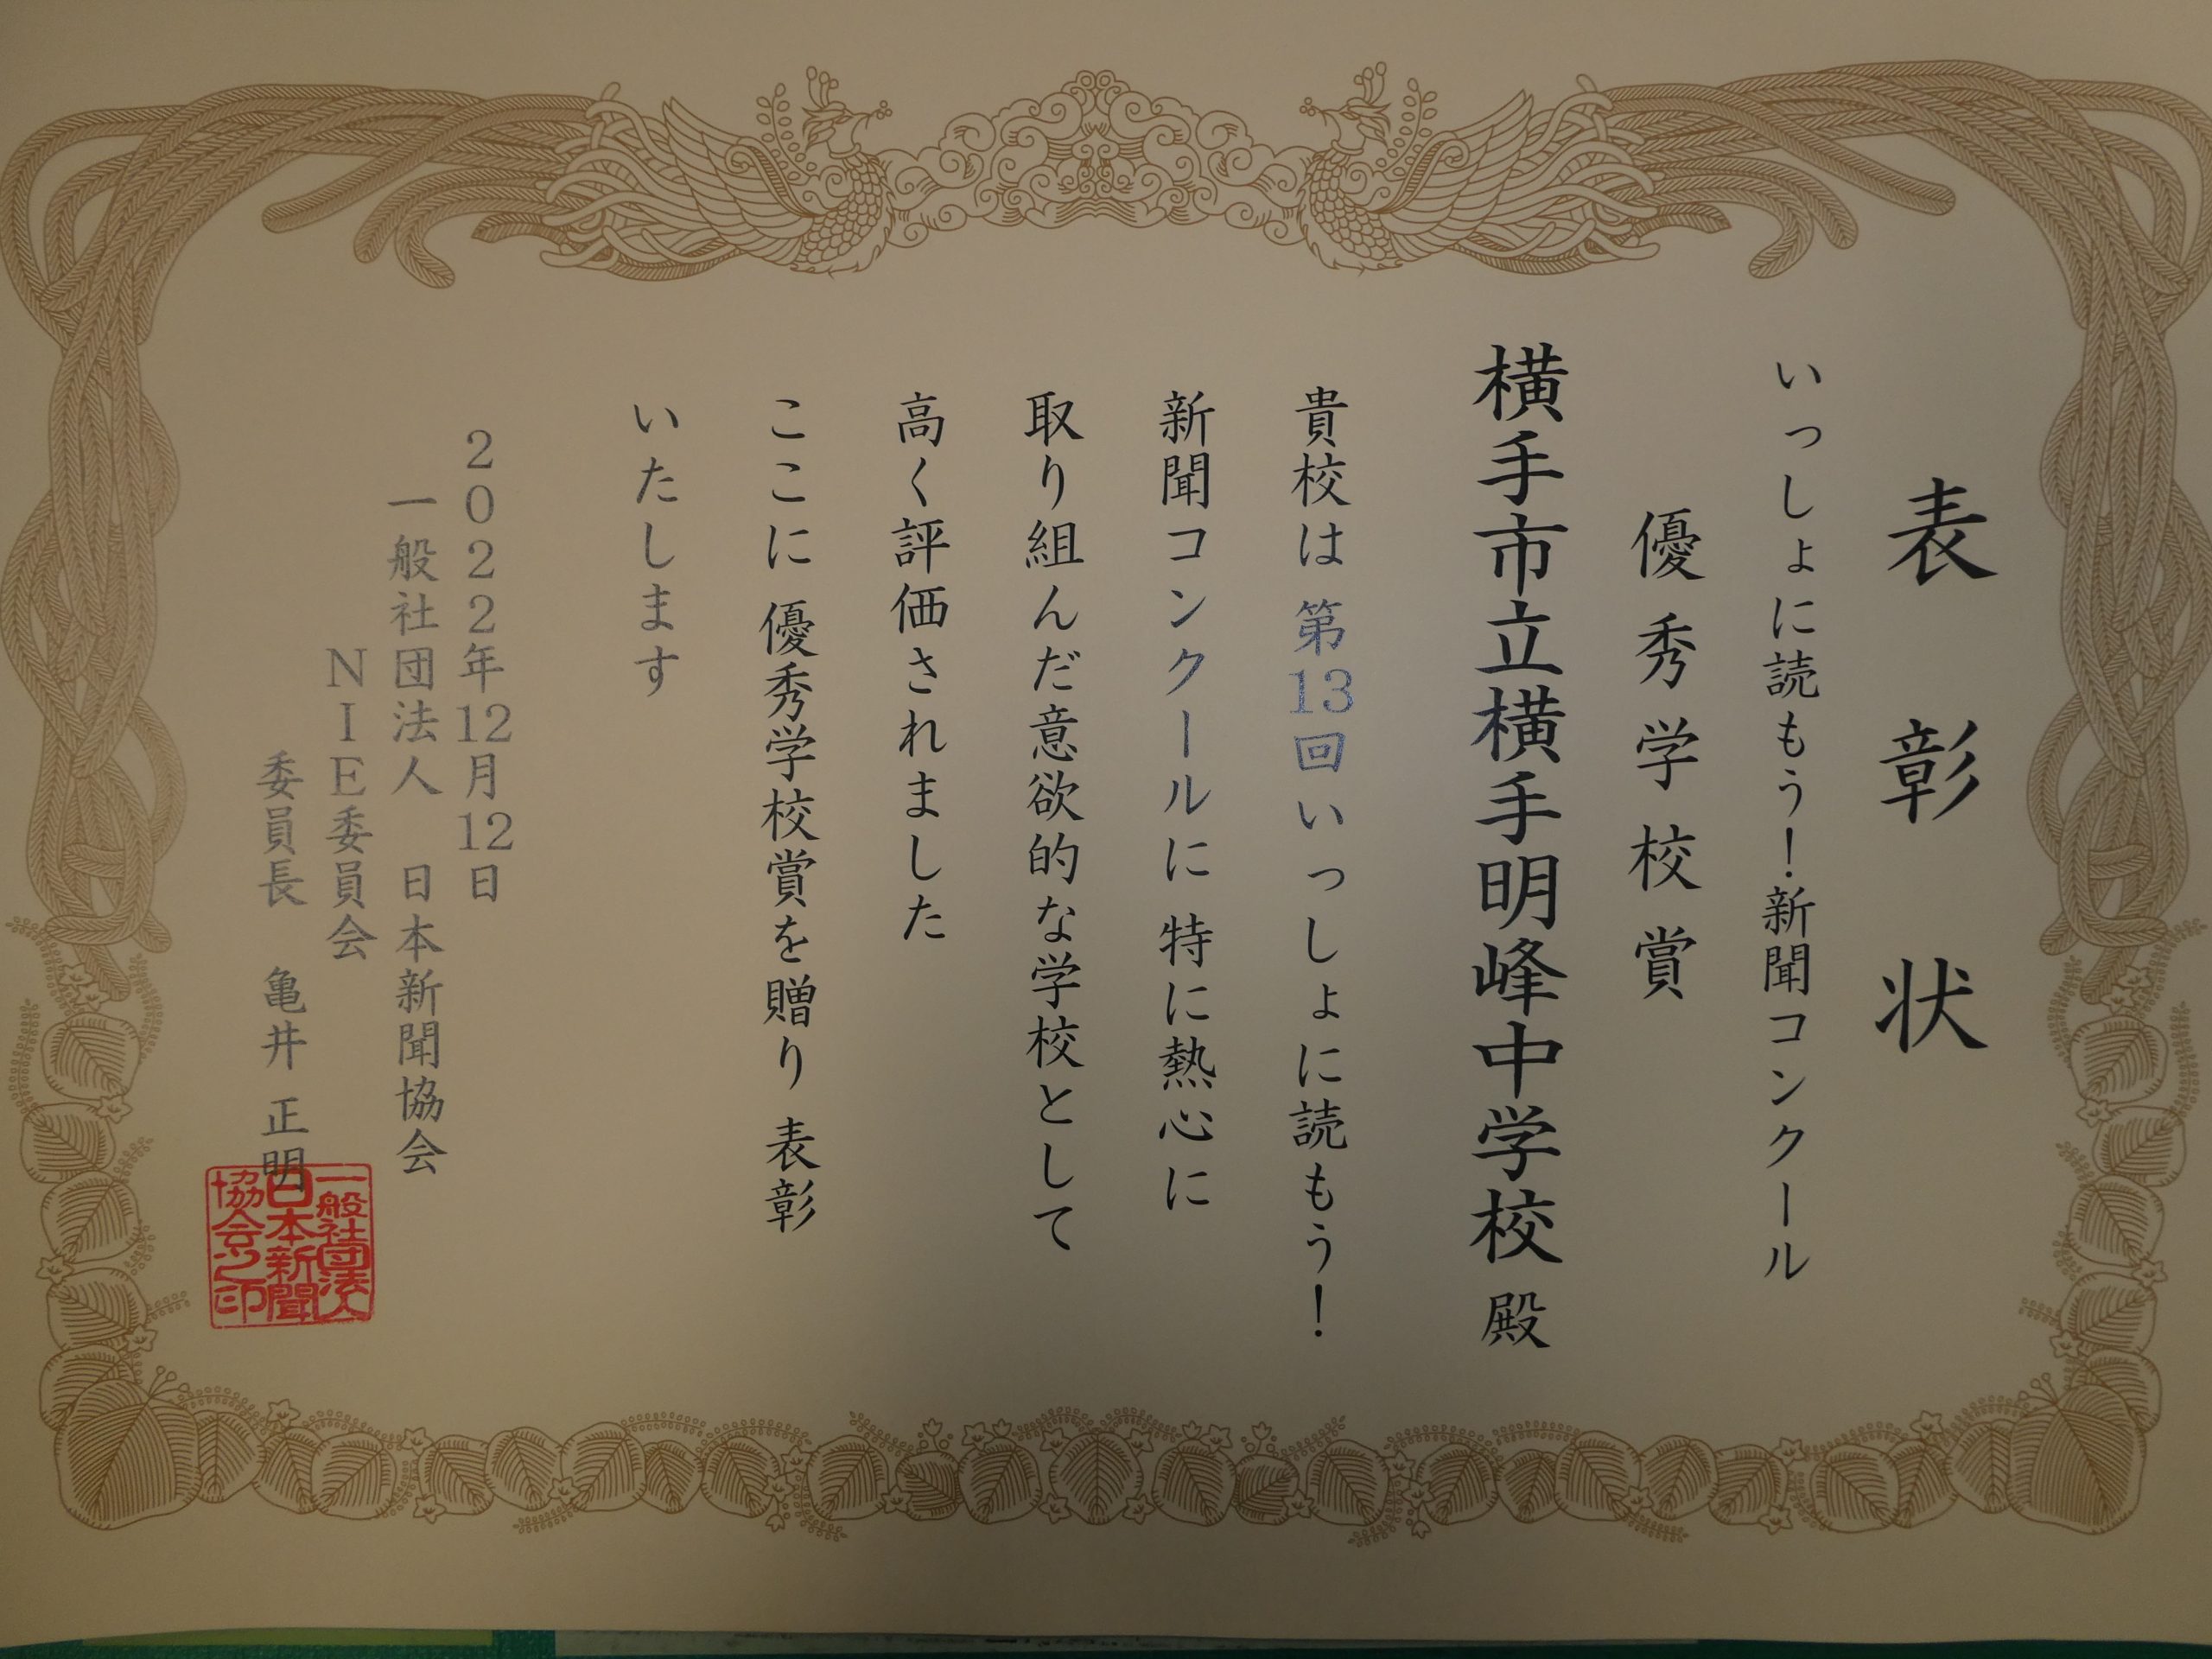 表彰状
いっしょに読もう！新聞コンクール
優秀学校賞
横手市立横手明峰中学校 殿
貴校は 第13回いっしょに読もう！
新聞コンクールに 特に熱心に
取り組んだ意欲的な学校として
高く評価されました
ここに 優秀学校賞を贈り 表彰
いたします
2022年12月12日
一般社団法人 日本新聞協会
NIE委員会
委員長 亀井 正明
一般社団法人
日本新聞
協会之印